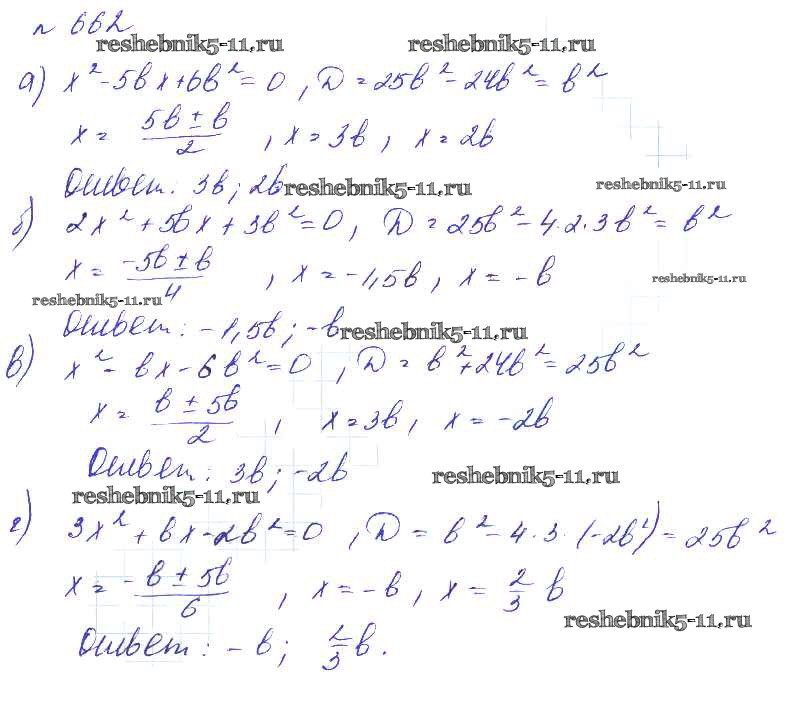 № 662
reshebnik5-11.ru reshebnik5-11.ru
а) x² - 5bx + 6b² = 0, D = 25b² - 24b² = b²
x = (5b ± b)/2, x = 3b, x = 2b
Ответ. 3b; 2b reshebnik5-11.ru reshebnik5-11.ru
б) 2x² + 5bx + 3b² = 0, D = 25b² - 4·2·3b² = b²
x = (-5b ± b)/4, x = -1,5b, x = -b reshebnik5-11.ru
reshebnik5-11.ru
Ответ: -1,5b; -b reshebnik5-11.ru
в) x² - bx - 6b² = 0, D = b² + 24b² = 25b²
x = (b ± 5b)/2, x = 3b, x = -2b
Ответ: 3b; -2b reshebnik5-11.ru
reshebnik5-11.ru
г) 3x² + bx - 2b² = 0, D = b² - 4·3·(-2b²) = 25b²
x = (-b ± 5b)/6, x = -b, x = 2/3 b
reshebnik5-11.ru
Ответ: -b; 2/3 b.